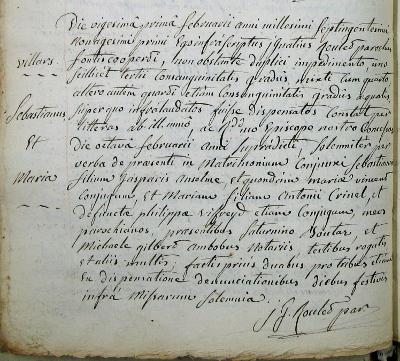 Die vigesima prima februarii anni millesimi septingentesimi
nonagesimi primi Ego infrascriptus Ignatius Roules parochus
villars fontis cooperti, non obstante duplici impedimento, uno
scilicet tertii consanguinitatis gradus mixti cum quarto
altero autem quarti etiam consanguinitatis gradus aequalis,
Sebastianus super quo invalidatos fuisse dispensatos constat per
litteras ab illmo, ac Rdmo Episcopo nostro concessas
Et die octava februarii anni supradicti solemniter per
verba de praesenti in Matrimonium Conjunxi Sebastianum
Maria filium Gasparis Anselme, et quondam maria vincent
conjugum, et Mariam filiam Antonii Crinel, et
defunctae philippae etiam Conjugum, meos
parochianos, praesentibus Saturnino Boutas, et
Michaele gilbert ambobus Notariis testibus rogatis,
et aliis multis; factis prius duabus pro tribus etiam
ex dispensatione denunciationibus diebus festivis
infra Missarum Solemnia
J G Roules par